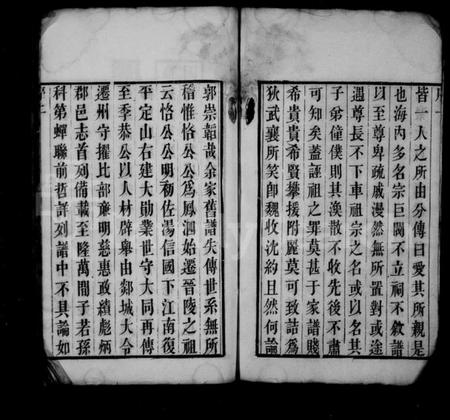 皆一人之所由分傳曰愛其所親是
也海內多名宗巨閥不立祠不敘譜
以至尊卑疏戚漫然無所置對或途
遇尊長不下車祖宗之名或以名其
子弟僮僕則其渙散不收先後不肅
可知矣蓋誣祖之罪莫甚于家譜賤
希貴貴希賢攀援附麗莫可致詰為
狄武襄所笑卽魏收沈約且然何論
郭崇韜哉余家舊譜失傳世系無所
稽惟恪公公為鳳泗始遷晉陵之祖
云恪公公明初佐湯信國下江南復
平定山右建大勛業世守大同再傳
至季恭公以人材辟舉由郯城大令
遷州守擢比部廉明慈惠政績彪炳
郡邑志首列備載至隆萬間子若孫
科第蟬聯前哲詳列譜中不具論如